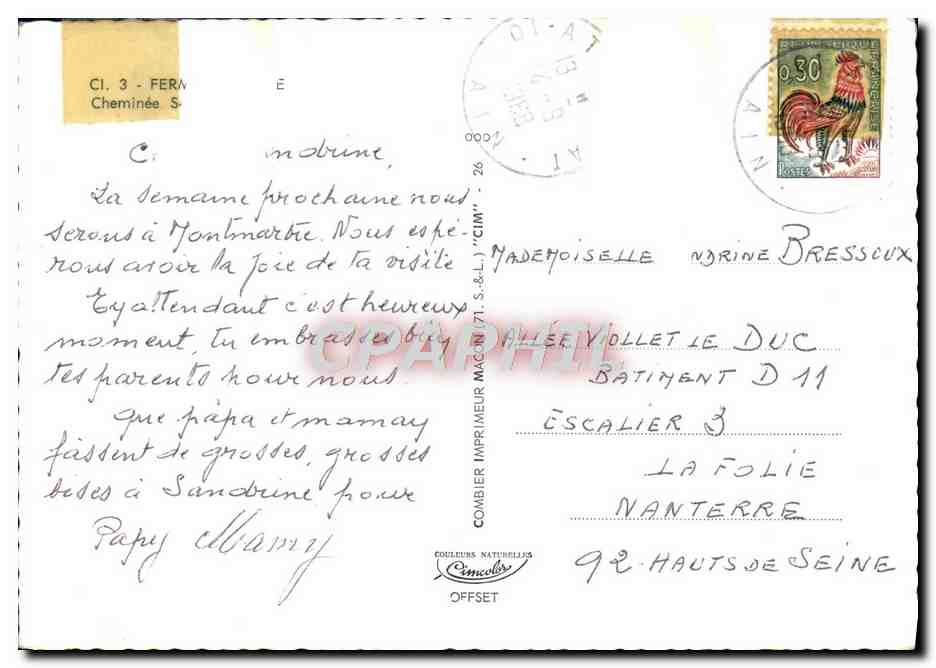 Cl. 3 - FERM E
Cheminée S
C ndrine,
La semaine prochaine nous
serons à Montmartre. Nous espé-
rons avoir la joie de ta visite
En attendant c'est heureux
moment, tu embrasses bien
tes parents pour nous.
Que papa et maman
fassent de grosses, grosses
bises à Sandrine pour
Papy Mamy
COMBIER IMPRIMEUR MACON (71. S.-&-L.) "CIM" - 26 000
COULEURS NATURELLES
Cimcolor
OFFSET
AIN
0.30
POSTES
AIN
MADEMOISELLE NDRINE BRESSOUX
ALLÉE VIOLLET LE DUC
BATIMENT D 11
ESCALIER 3
LA FOLIE
NANTERRE
92-HAUTS DE SEINE
CPAPHIL